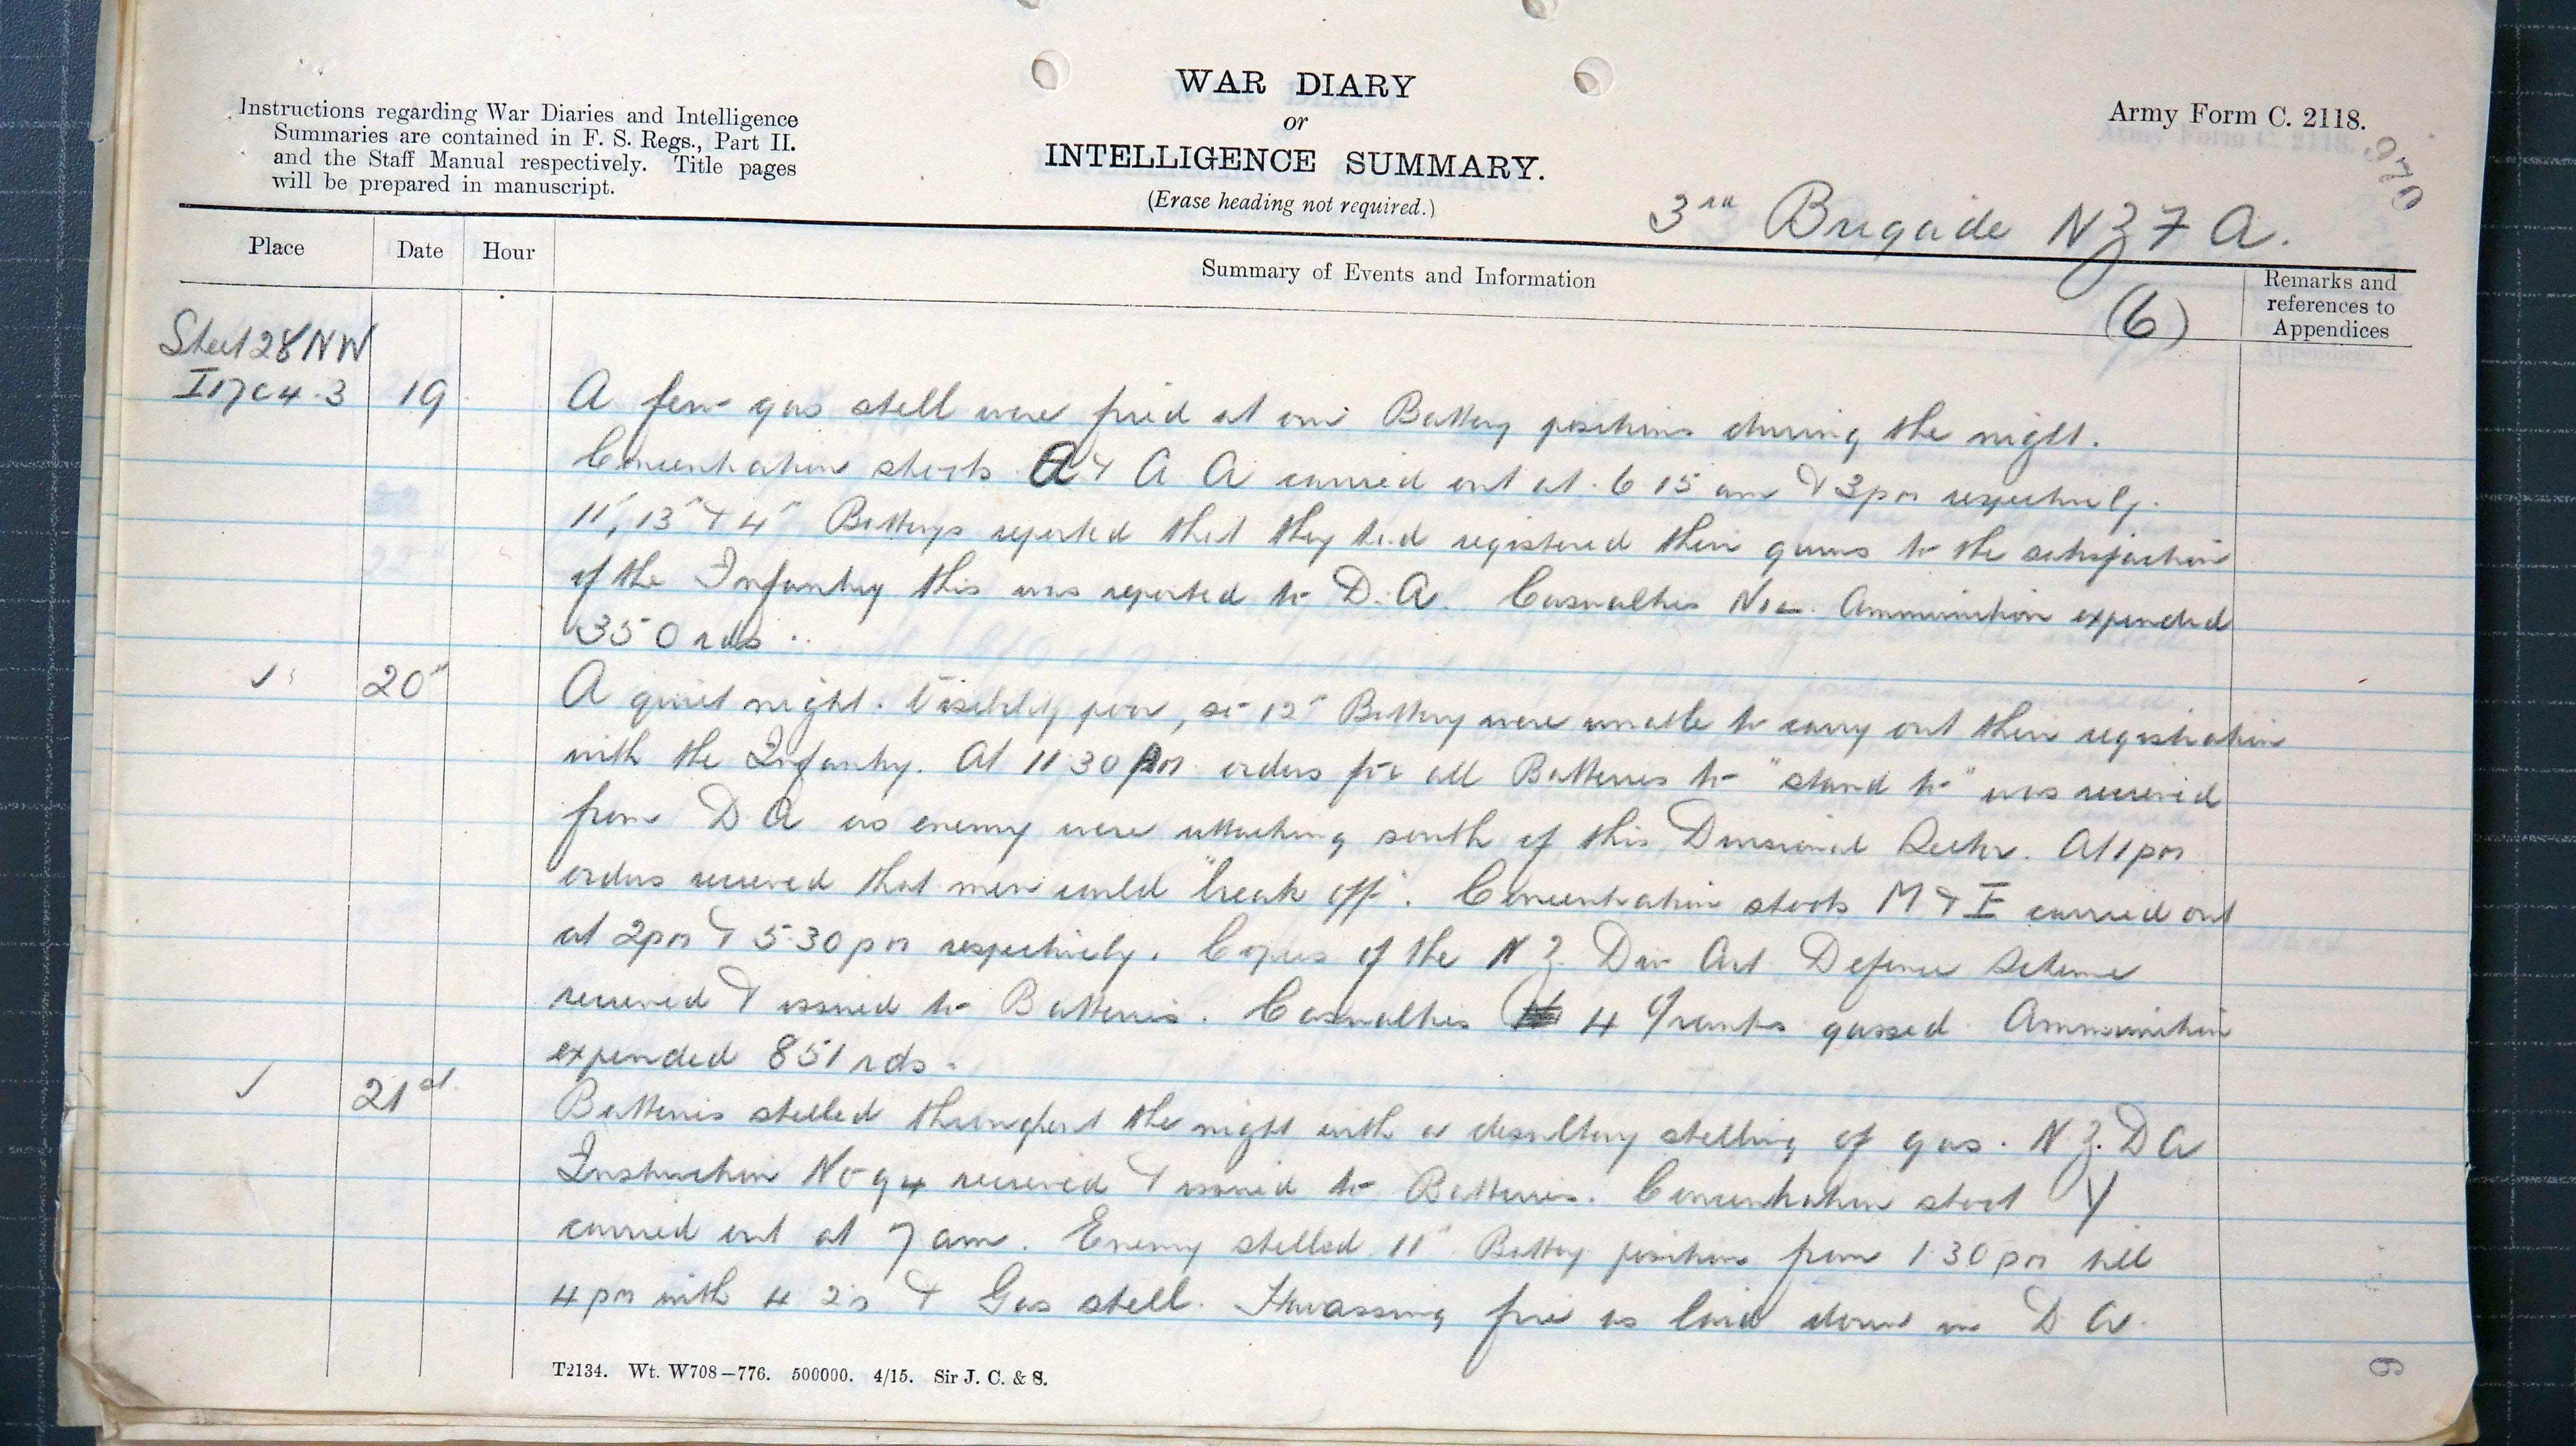 Instructions regarding War Diaries and Intelligence
Summaries are contained in F. S. Regs., Part II.
and the Staff Manual respectively. Title pages
will be prepared in manuscript.
WAR DIARY
or
INTELLIGENCE SUMMARY.
(Erase heading not required.)
Army Form C. 2118.
3rd Brigade NZFA.
Place
Date
Hour
Summary of Events and Information
Remarks and
references to
Appendices
(6)
Sheet 28NW
I17C4.3
19
A few gas shell were fired at our Battery positions during the night.
Concentration shoots A & A A carried out at 6 15 am & 3pm respectively.
11", 13" & 4" Batterys reported that they had registered their guns to the satisfaction
of the Infantry this was reported to D.A. Casualties Ammunition expended
350 rds.
20"
A quiet night. Visibility poor, so 12" Battery were unable to carry out their registration
with the Infantry. At 11 30 orders for all Batteries to "stand to" was received
from D A as enemy were attacking south of this Divisional Sector. At 1 pm
orders received that men could "break off". Concentration shoots M & E carried out
at 2pm & 5.30 pm respectively. Copies of the N Z. Div Art Defence Scheme
received & issued to Batteries. Casualties 4 O/ranks gassed. Ammunition
expended 851 rds.
21st
Batteries shelled throughout the night with a desultory shelling of gas. N Z. D A
Instruction No 94 received & issued to Batteries. Concentration shoot Y
carried out at 7 am. Enemy shelled 11" Battery positions from 1 30 pm till
4 pm with 4 2s & Gas shell. Harassing fire as laid down in D A.
T2134. Wt. W708—776. 500000. 4/15. Sir J. C. & S.